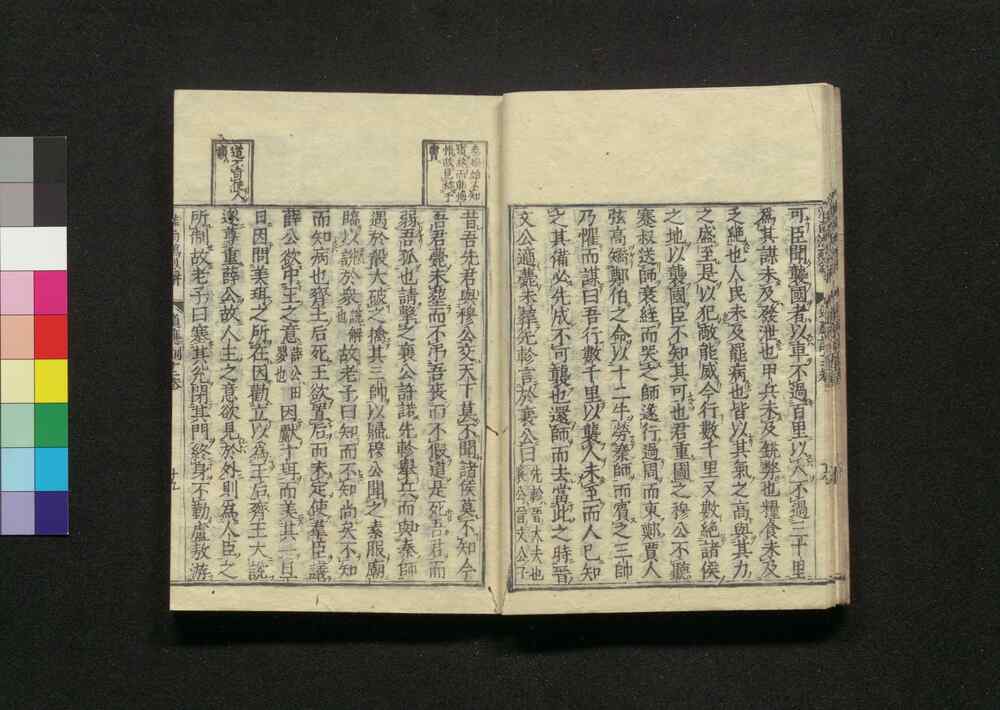 可臣聞襲國者以車不過百里以人不過三十里
爲其謀未及發泄也甲兵未及銳弊也糧食未及
乏絕也人民未及罷病也皆以其氣之高與其力
之盛至是以犯敵能威今行數千里又數絕諸侯
之地以襲國臣不知其可也君重圖之穆公不聽
蹇叔送師衰絰而哭之師遂行過周而東鄭賈人
弦高矯鄭伯之命以十二牛勞秦師而賓之三帥
乃懼而謀曰吾行數千里以襲人未至而人已知
之其備必先成不可襲也還師而去當此之時晉
文公適薨未葬先軫言於襄公曰先軫晉大夫也襄公晉文公子
昔吾先君與穆公交天下莫不聞諸侯莫不知今
吾君薨未葬而不弔吾喪而不假道是死吾君而
弱吾孤也請擊之襄公許諾先軫舉兵而與秦師
遇於殽大破之擒其三帥以歸穆公聞之素服廟
臨以說於衆說解也故老子曰知而不知尚矣不知
而知病也齊王后死王欲置后而未定使羣臣議
薛公欲中王之意薛公田嬰也因獻十珥而美其一旦
日因問美珥之所在因勸立以爲王后齊王大說
遂尊重薛公故人主之意欲見於外則爲人臣之
所制故老子曰塞其兌閉其門終身不勤盧敖游
十五